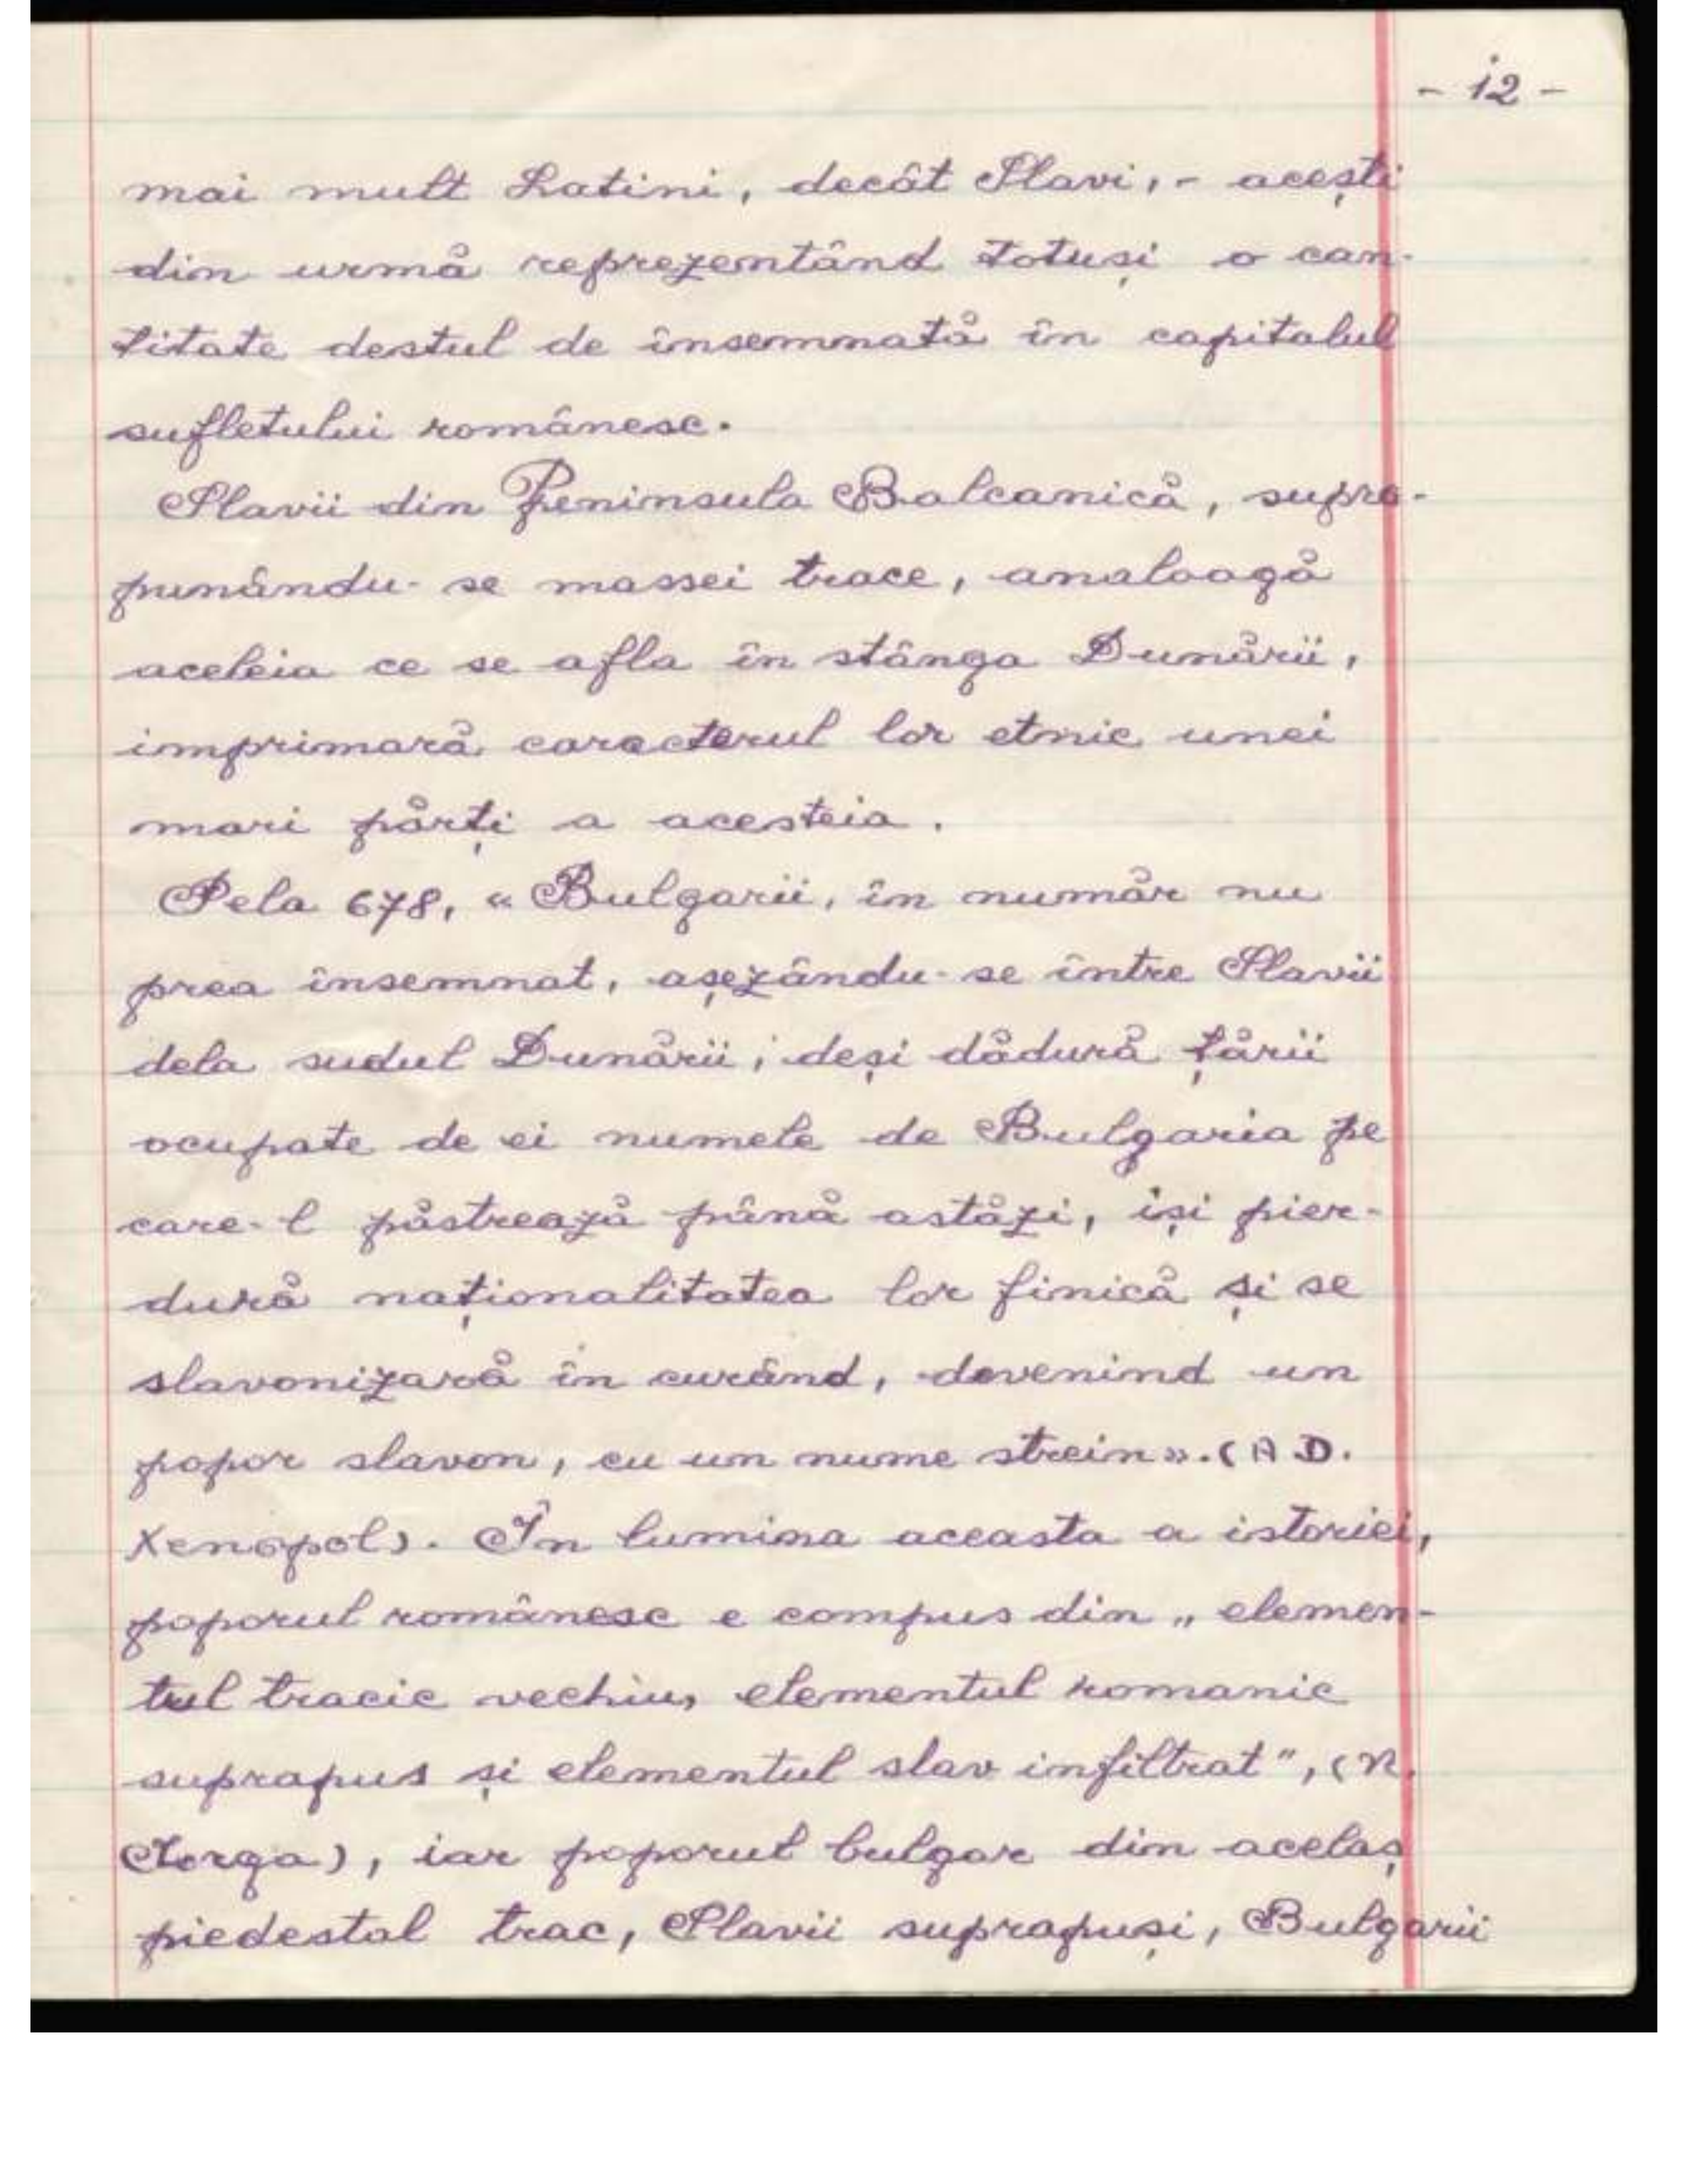 - 12 -
mai mult Latini, decât Slavi, - acești
din urmă reprezentând totuși o can-
titate destul de însemnată în capitalul
sufletului românesc.
Slavii din Peninsula Balcanică, supra-
punându-se massei trace, analoagă
aceleia ce se afla în stânga Dunării,
imprimară caracterul lor etnic unei
mari părți a acesteia.
Pela 678, « Bulgarii, în număr nu
prea însemnat, așezându-se între Slavii
dela sudul Dunării; deși dădură țării
ocupate de ei numele de Bulgaria pe
care-l păstrează până astăzi, iși pier-
dură naționalitatea lor finică și se
slavonizară în curând, devenind un
popor slavon, cu un nume strein». (A D.
Xenopol). În lumina aceasta a istoriei,
poporul românesc e compus din „ elemen-
tul tracic vechiu, elementul romanic
suprapus și elementul slav infiltrat”, (N.
Iorga), iar poporul bulgar din acelaș
piedestal trac, Slavii suprapuși, Bulgarii